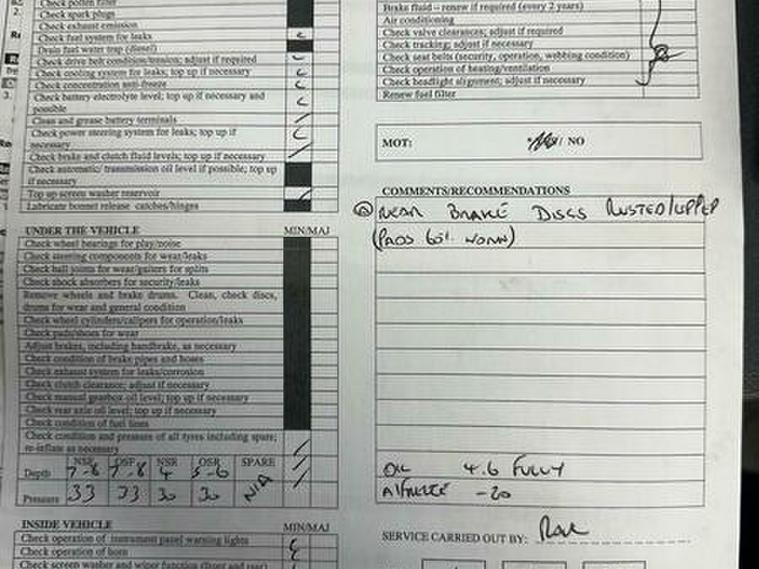 Check pollen filter
Check spark plugs
Check exhaust emission
Check fuel system for leaks
Drain fuel water trap (diesel)
Check drive belt condition/tension; adjust if required
Check cooling system for leaks; top up if necessary
Check concentration anti-freeze
Check battery electrolyte level; top up if necessary and
possible
Clean and grease battery terminals
Check power steering system for leaks; top up if
necessary
Check brake and clutch fluid levels; top up if necessary
Check automatic/ transmission oil level if possible; top up
if necessary
Top up screen washer reservoir
Lubricate bonnet release catches/hinges
UNDER THE VEHICLE MIN/MAJ
Check wheel bearings for play/noise
Check steering components for wear/leaks
Check ball joints for wear/gaiters for splits
Check shock absorbers for security/leaks
Remove wheels and brake drums. Clean, check discs,
drums for wear and general condition
Check wheel cylinders/calipers for operation/leaks
Check pads/shoes for wear
Adjust brakes, including handbrake, as necessary
Check condition of brake pipes and hoses
Check exhaust system for leaks/corrosion
Check clutch clearance; adjust if necessary
Check manual gearbox oil level; top up if necessary
Check rear axle oil level; top up if necessary
Check condition of fuel lines
Check condition and pressure of all tyres including spare;
re-inflate as necessary
NSF OSF NSR OSR SPARE
Depth 7-8 7-8 4 5-6
Pressure 33 33 30 30 N/A
INSIDE VEHICLE MIN/MAJ
Check operation of instrument panel warning lights
Check operation of horn
Check screen washer and wiper function (front and rear)
Brake fluid – renew if required (every 2 years)
Air conditioning
Check valve clearances; adjust if required
Check tracking; adjust if necessary
Check seat belts (security, operation, webbing condition)
Check operation of heating/ventilation
Check headlight alignment; adjust if necessary
Renew fuel filter
MOT: / NO
COMMENTS/RECOMMENDATIONS
REAR BRAKE DISCS RUSTED/LIPPED
(PADS 60% WORN)
OIL 4.6 FULLY
A/FREEZE -20
SERVICE CARRIED OUT BY: